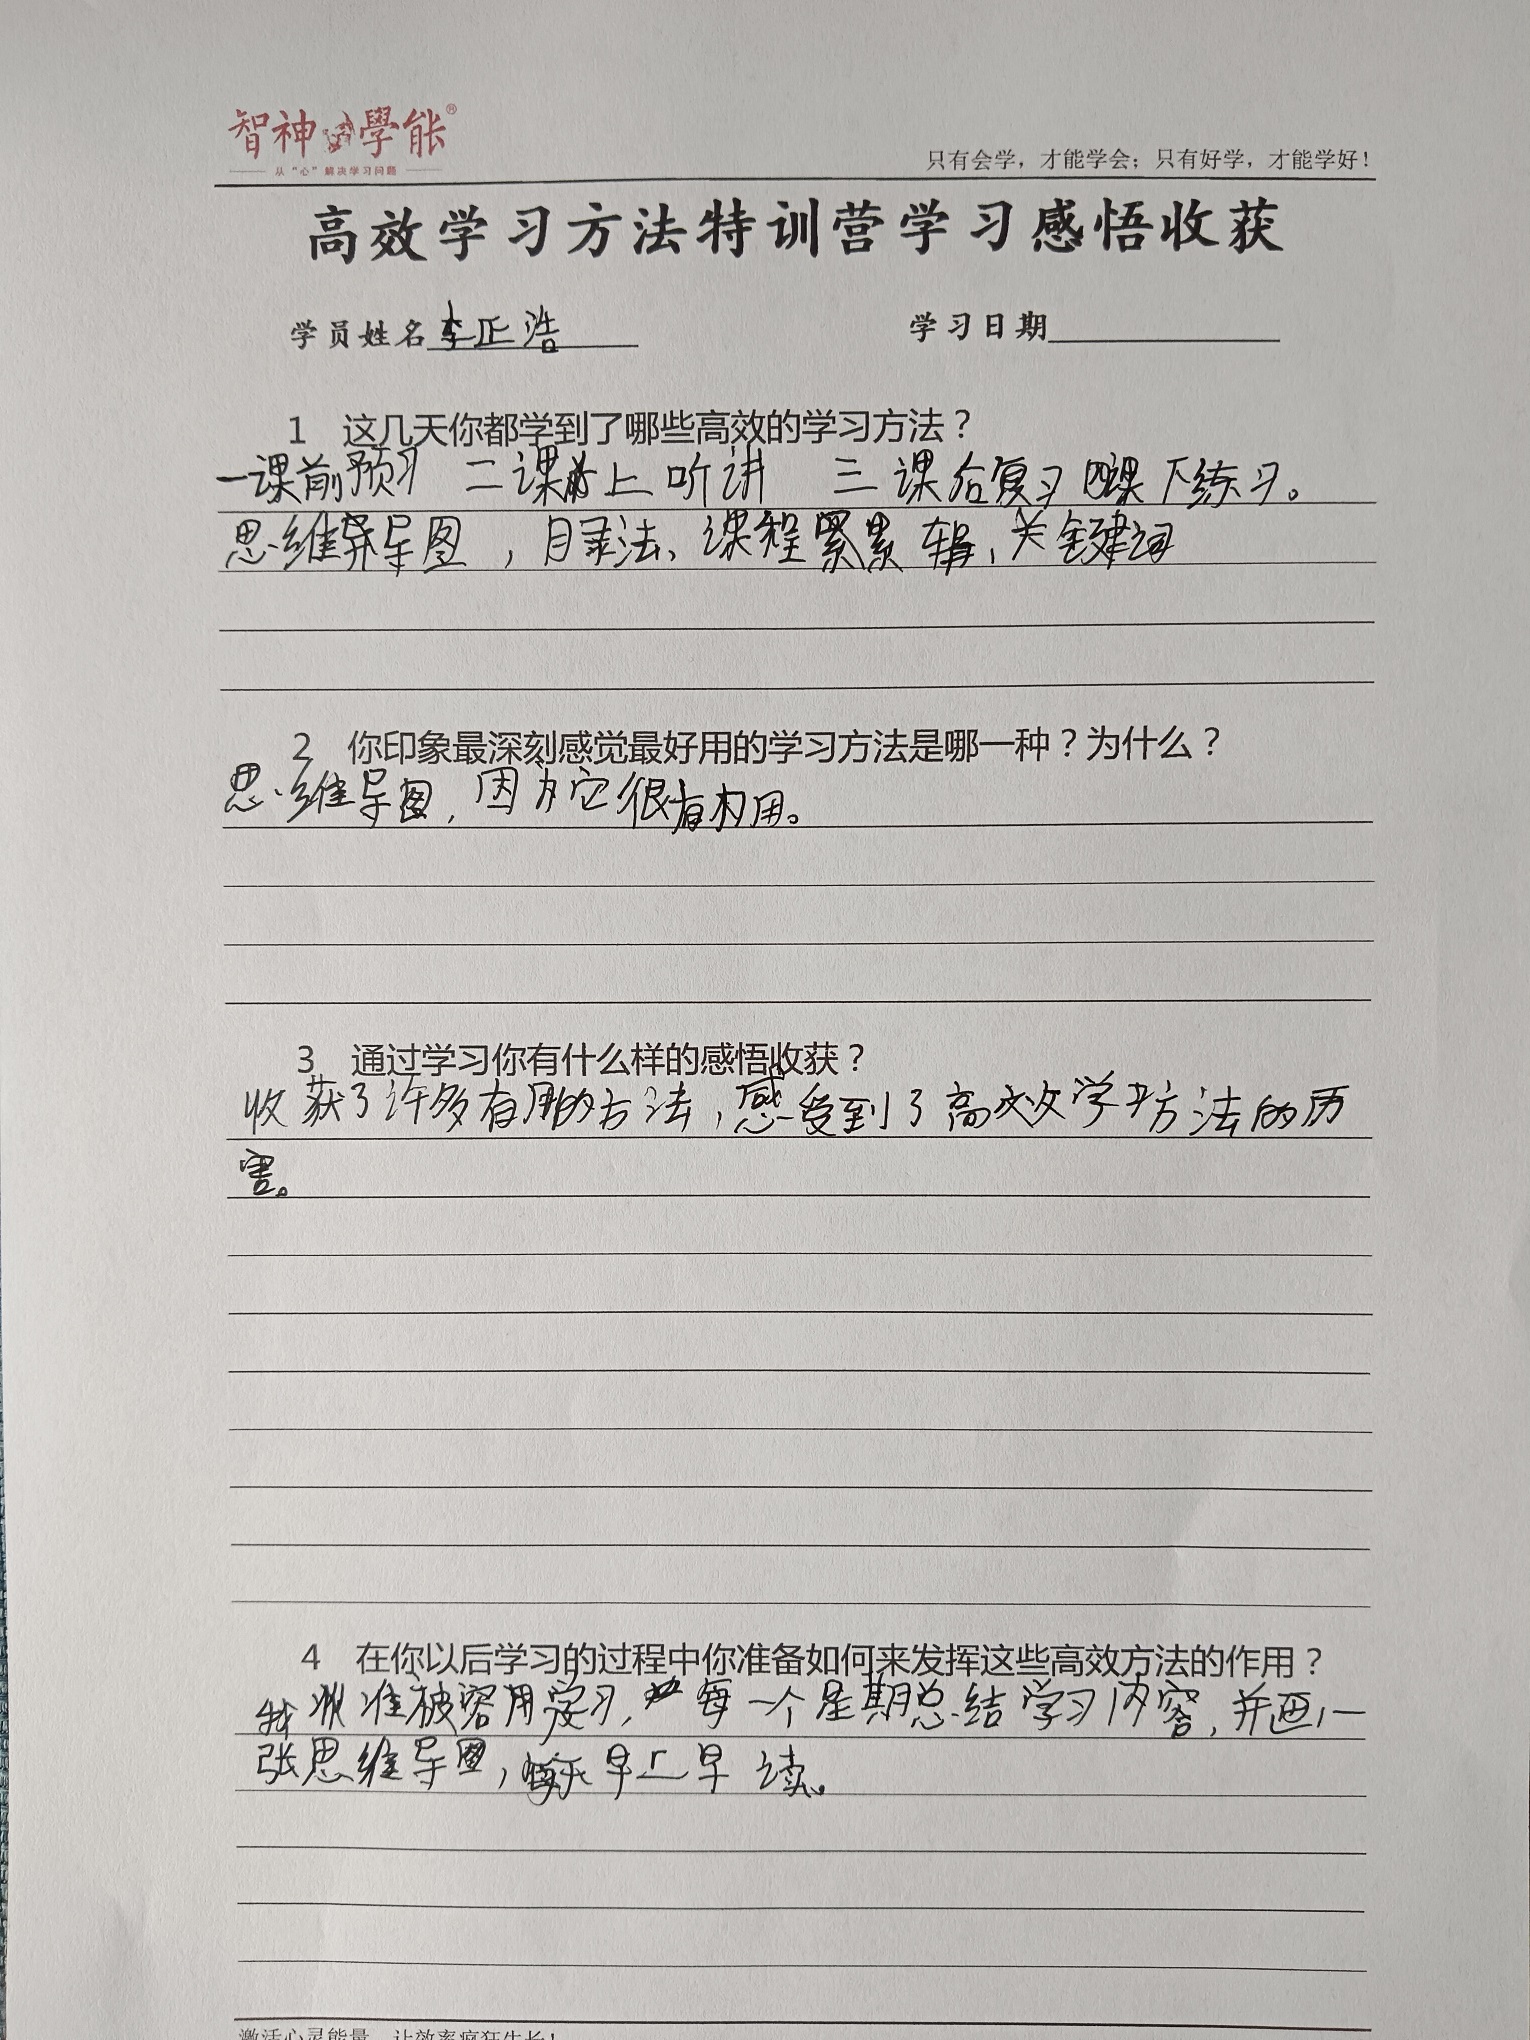 智神學能®
从“心”解决学习问题
只有会学，才能学会；只有好学，才能学好！
高效学习方法特训营学习感悟收获
学员姓名 李正浩
学习日期
1 这几天你都学到了哪些高效的学习方法？
一课前预习 二课上听讲 三课后复习 四课下练习。
思维导图，目录法、课程 累 辑、关键词
2 你印象最深刻感觉最好用的学习方法是哪一种？为什么？
思维导图，因为它很有用。
3 通过学习你有什么样的感悟收获？
收获了许多有用的方法，感受到了高效学习方法的历
害。
4 在你以后学习的过程中你准备如何来发挥这些高效方法的作用？
我 准 用 习，每一个星期总结学习内容，并画一
张思维导图，每天早上早读。
激活心灵能量，让效率疯狂生长！